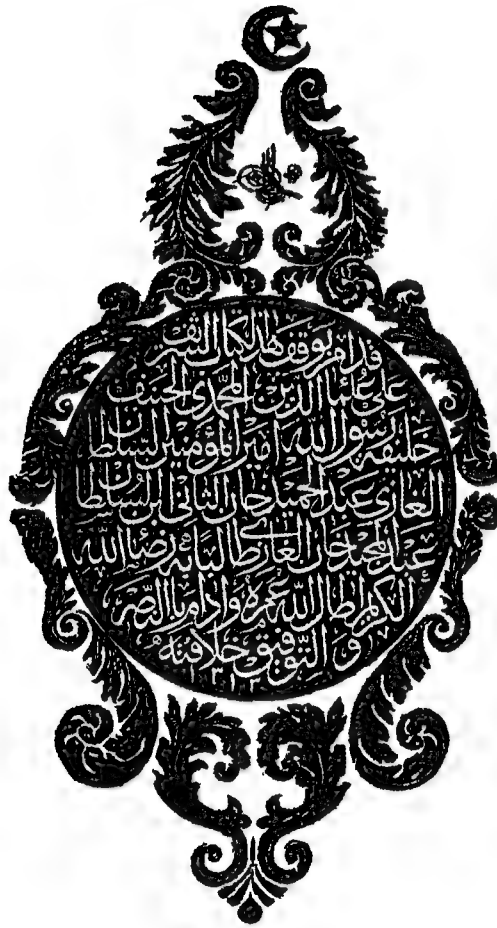 قد امر بوقف هذا الكتاب الشريف
على علماء الدين المحمدى الحنيف
خليفة رسول الله امير المؤمنين السلطان
الغازى عبد الحميد خان الثانى ابن السلطان
عبد المجيد خان الغازى طالبا به رضا الله
الكريم اطال الله عمره وادام بالنصر
والتوفيق خلافته